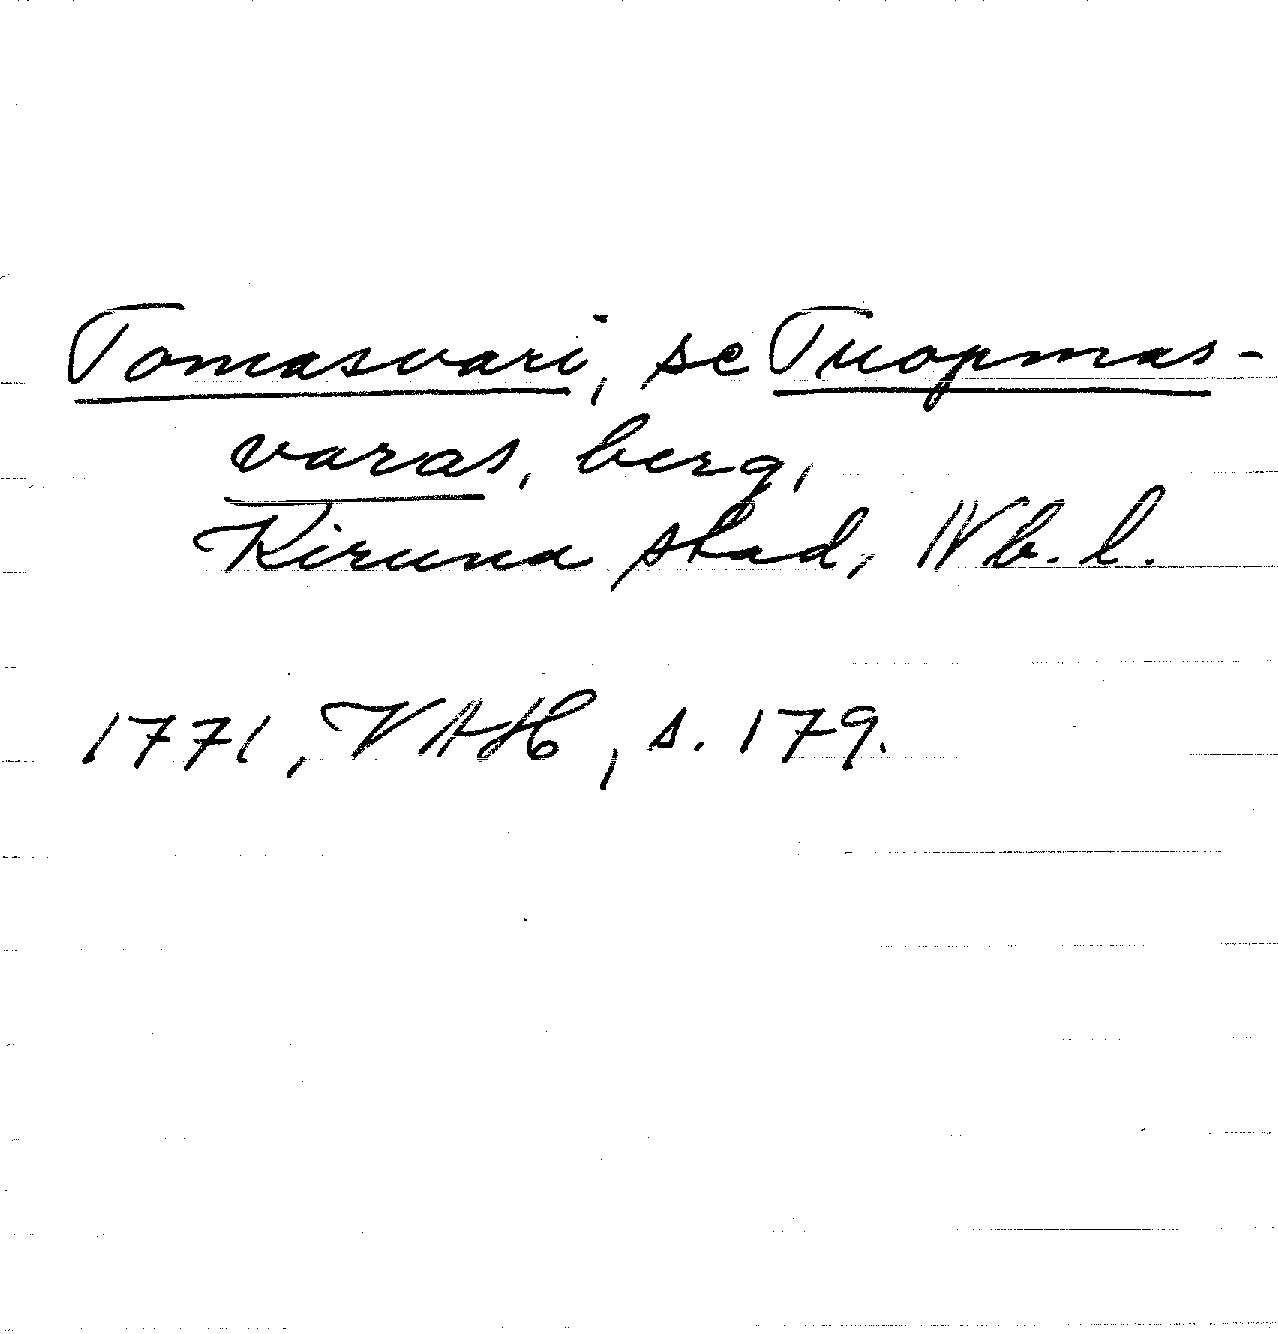 Tomasvari, se Tuopmas-
varas, berg,
Kiruna stad, Nb. l.
1771, VAH, s. 179.